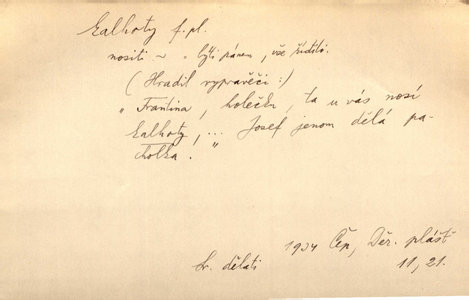 Kalhoty f. pl.
nositi ~ „býti pánem, vše říditi.
(Hradil vypravěči:)
„Frantina, holečku, ta u vás nosí
kalhoty, ... Josef jenom dělá pa-
cholka."
1934 Čep, Děr. plášť
sr. dělati 11, 21.